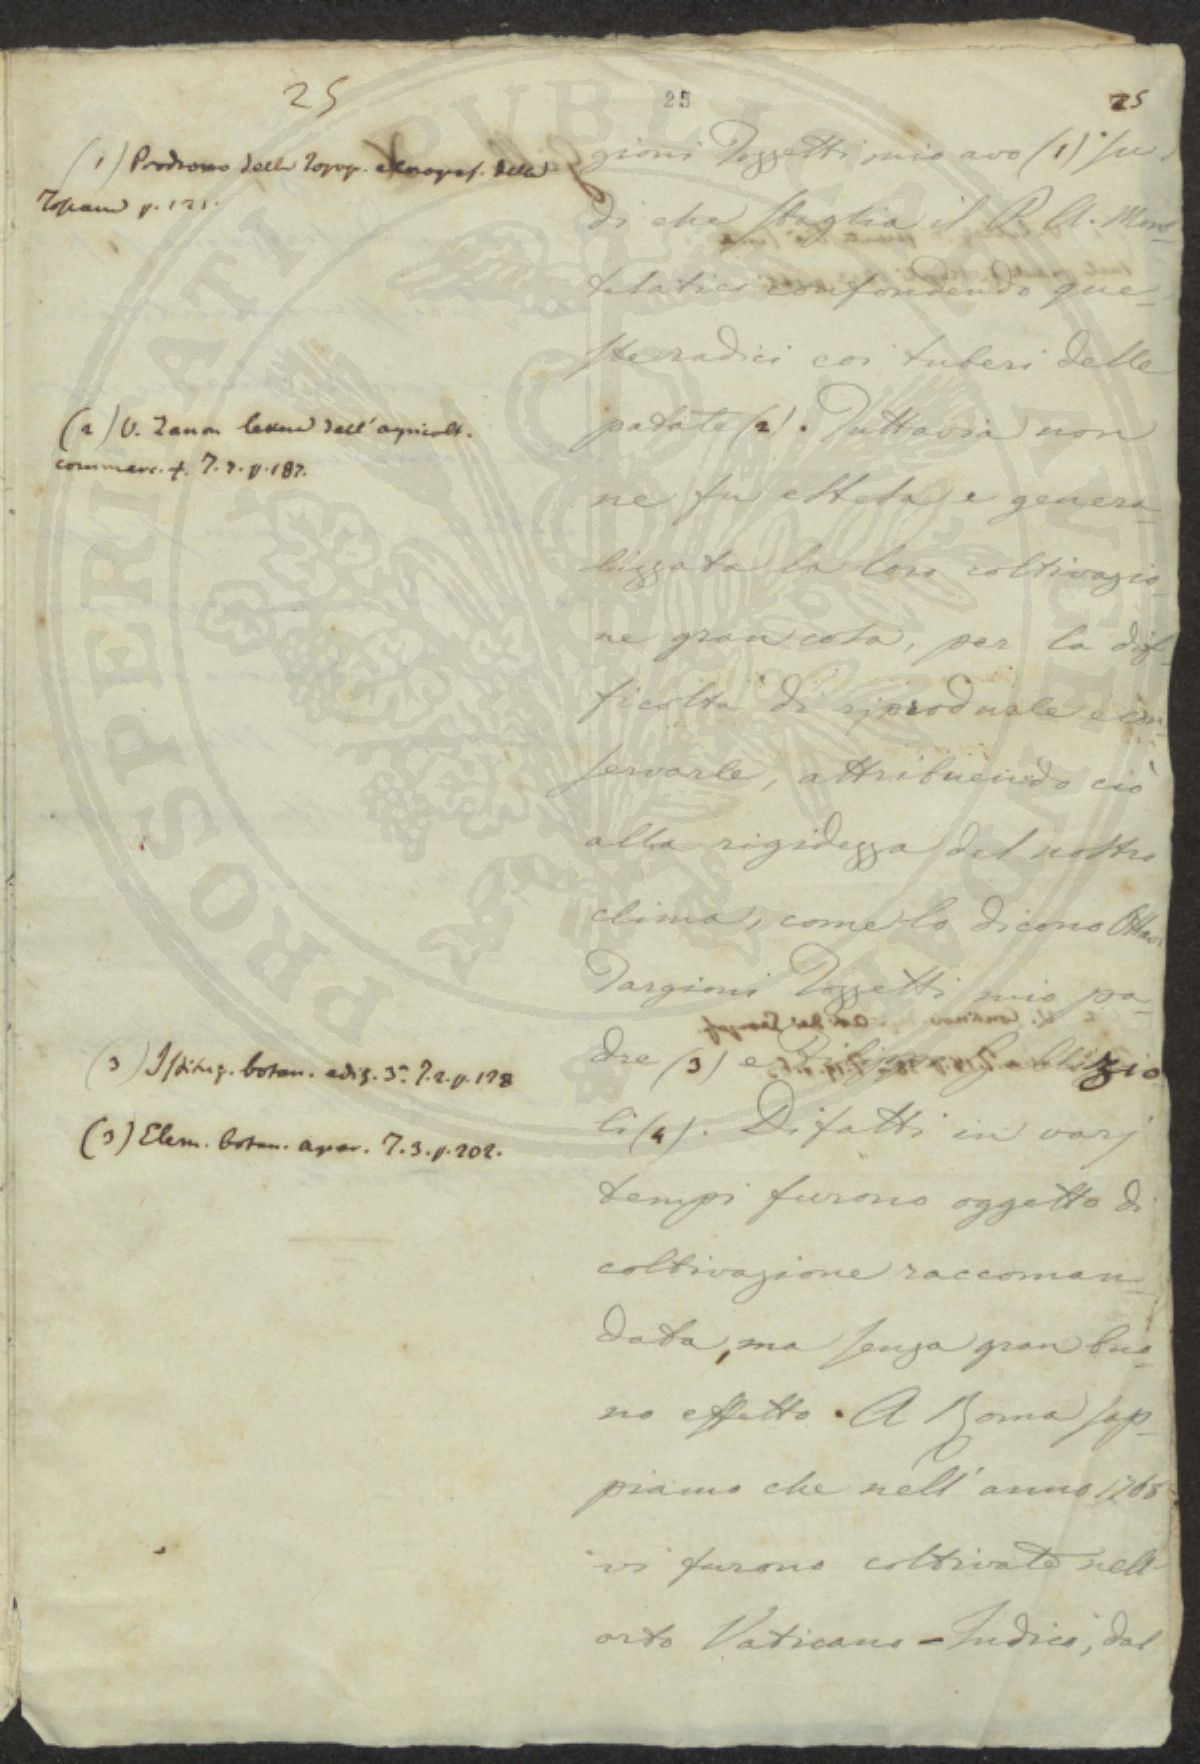 25
25
25
(1) Prodromo della Topogr. e Corograf. della
Toscana p. 121.
(2) V. Zanon letter dell'agricolt.
commerc. T. 7. p. 187.
(3) Istituz. botan. ediz. 3ª T. 2. p. 198
(3) Elem. botan. agrar. T. 3. p. 202.
gioni Tozzetti mio avo (1) su
di che sbaglia il P. A. Mon-
telatici confondendo que-
ste radici coi tuberi delle
patate (2). Tuttavia non
ne fu estesa, e genera-
lizzata la loro coltivazio-
ne gran cosa, per la dif-
ficoltà di riprodurle e con-
servarle, attribuendo ciò
alla rigidezza del nostro
clima, come lo dicono Ottav.
Targioni Tozzetti mio pa-
dre (3) e Filippo Gallizio-
li (4). Difatti in varj
tempi furono oggetto di
coltivazione raccoman-
data, ma senza gran buo-
no effetto. A Roma sap-
piamo che nell'anno 1768
vi furono coltivate nell'
orto Vaticano-Indico, dal
PROSPERITATI PUBLICAE AUGENDAE